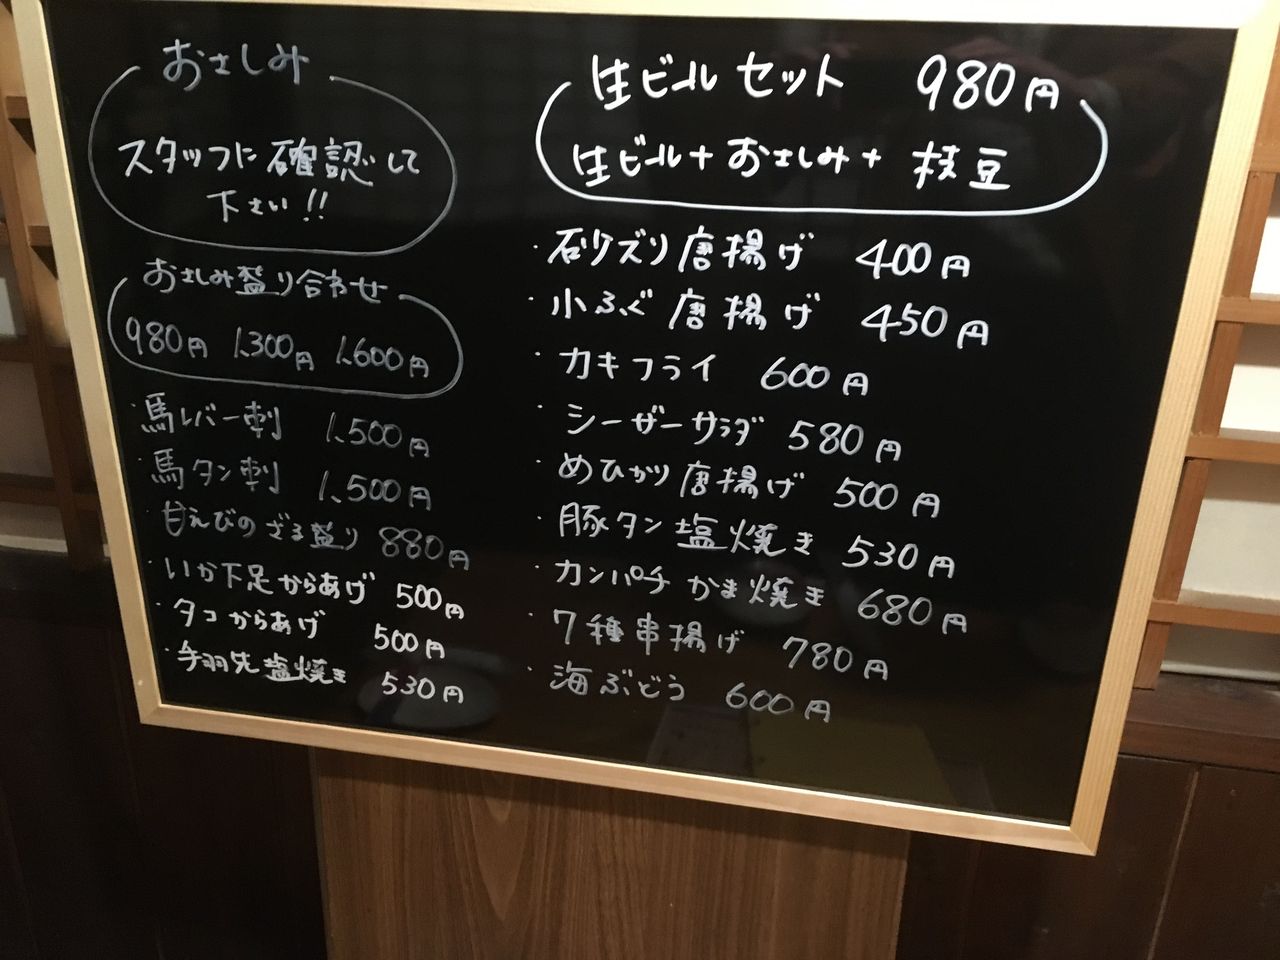 おさしみ
スタッフに確認して
下さい!!
おさしみ盛り合わせ
980円 1,300円 1,600円
・馬レバー刺 1,500円
・馬タン刺 1,500円
・甘えびのざる盛り 880円
・いか下足からあげ 500円
・タコからあげ 500円
・手羽先塩焼き 530円
生ビールセット 980円
生ビール+おさしみ+枝豆
・砂ズリ唐揚げ 400円
・小ふぐ唐揚げ 450円
・カキフライ 600円
・シーザーサラダ 580円
・めひかり唐揚げ 500円
・豚タン塩焼き 530円
・カンパチかま焼き 680円
・7種串揚げ 780円
・海ぶどう 600円